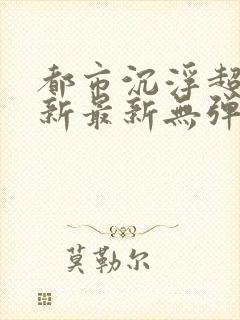 都市沉浮超
新最新無弹
莫勒尔